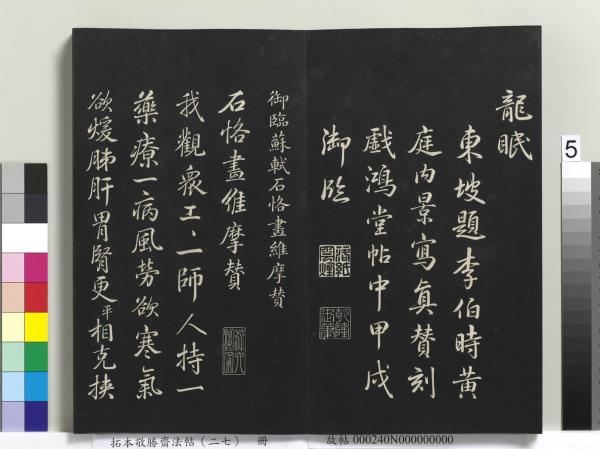 龍眠
東坡題李伯時黃
庭内景寫真賛刻
戲鴻堂帖中甲戌
御臨
御臨蘇軾石恪畫維摩賛
石恪畫維摩賛
我觀衆工、一師人持一
藥療一病風勞欲寒氣
欲煖肺肝胃腎更相克挾
5
拓本敬勝齋法帖（二七）　冊
故帖 000240N000000000